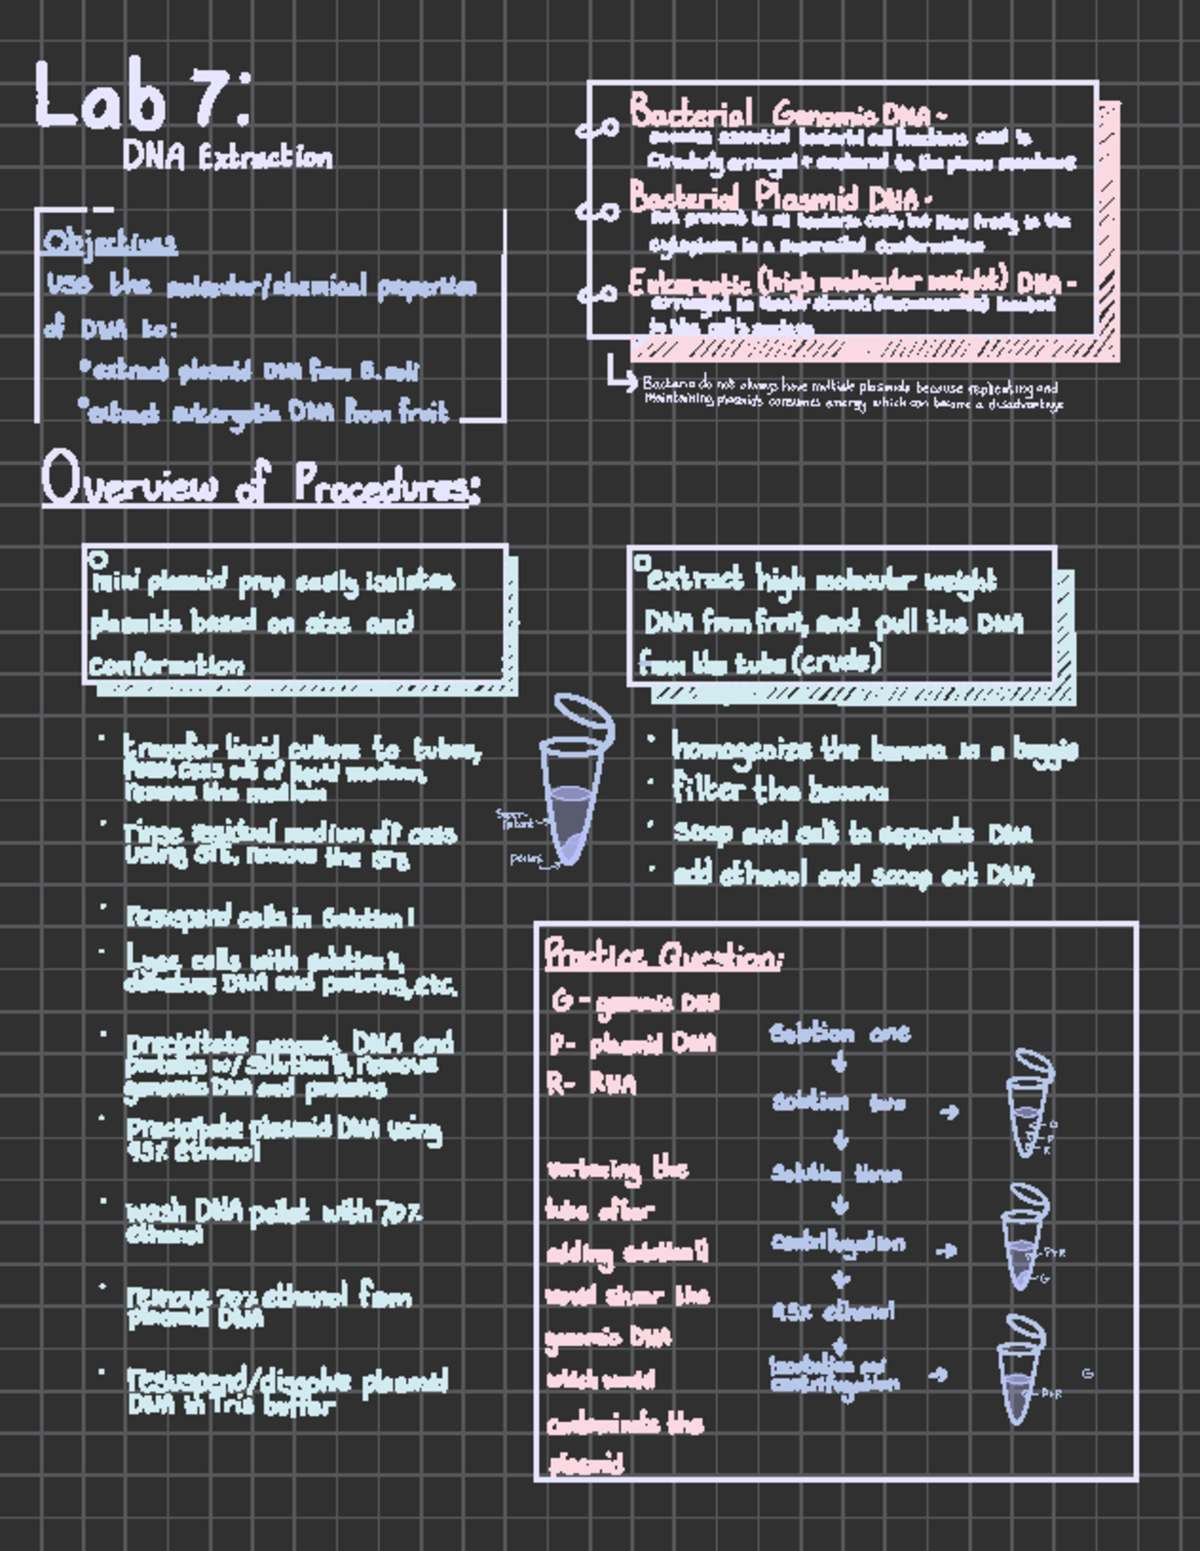 Lab 7:
DNA Extraction
Objectives
use the molecular/chemical properties
of DNA to:
•extract plasmid DNA from E. coli
•extract eukaryotic DNA from fruit
Bacterial Genomic DNA -
essential bacterial cell functions and is
circularly arranged + anchored to the plasma membrane
Bacterial Plasmid DNA -
not present in all bacteria cells, but flow freely in the
cytoplasm in a supercoiled conformation
Eukaryotic (high molecular weight) DNA -
arranged in linear strands (chromosomes) located
in the cell's nucleus
Bacteria do not always have multiple plasmids because replicating and
maintaining plasmids consumes energy which can become a disadvantage
Overview of Procedures:
mini plasmid prep easily isolates
plasmids based on size and
conformation
• transfer liquid culture to tubes,
of liquid medium,
remove the medium
• rinse residual medium off cells
using STE, remove the STE
• Resuspend cells in Solution I
• Lyse cells with solution II,
denature DNA and proteins, etc.
• precipitate genomic DNA and
proteins w/ solution III, remove
genomic DNA and proteins
• Precipitate plasmid DNA using
95% ethanol
• wash DNA pellet with 70%
ethanol
• remove 70% ethanol from
plasmid DNA
• resuspend/dissolve plasmid
DNA in Tris buffer
Super-
natant
pellet
extract high molecular weight
DNA from fruit, and pull the DNA
from the tube (crude)
• homogenize the banana in a baggie
• filter the banana
• soap and salt to separate DNA
• add ethanol and scoop out DNA
Practice Question:
G - genomic DNA
P- plasmid DNA
R- RNA
vortexing the
tube after
adding solution II
would shear the
genomic DNA
which would
contaminate the
plasmid
Solution one
Solution two
G
P
R
Solution three
centrifugation
P+R
G
95% ethanol
incubation and
centrifugation
P+R
G